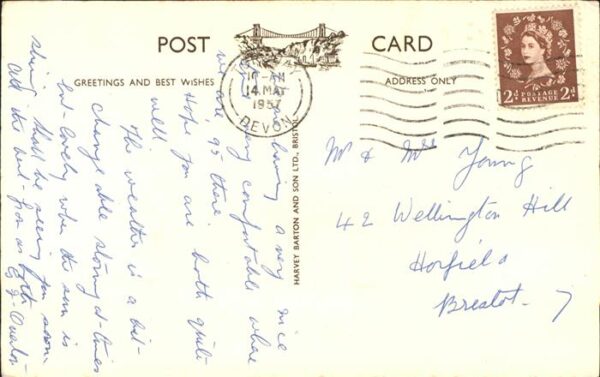 POST CARD
GREETINGS AND BEST WISHES
ADDRESS ONLY
10-AM
14 MAY
1957
DEVON
2D POSTAGE REVENUE 2D
HARVEY BARTON AND SON LTD., BRISTOL
having a very nice
very comfortable where
we are,
Hope you are both quite
well
The weather is a bit
changeable stormy at times
but lovely when the sun is
shining shall be seeing you soon
all the best for
Mr & Mrs Young
42 Wellington Hill
Horfield
Bristol. 7